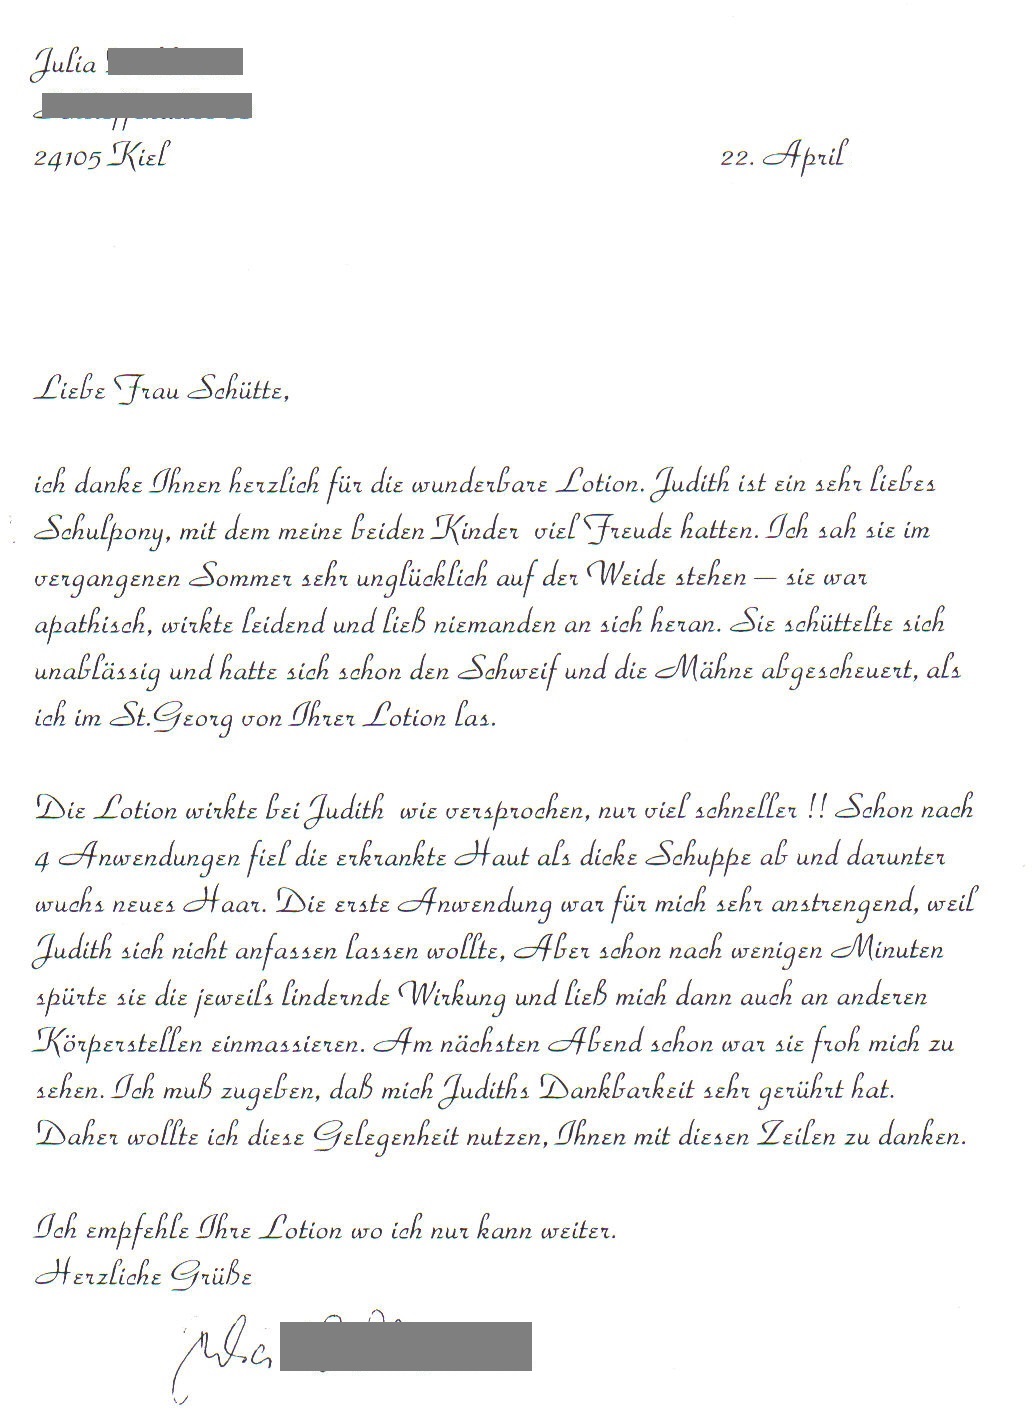 Julia
24105 Kiel
22. April
Liebe Frau Schütte,
ich danke Ihnen herzlich für die wunderbare Lotion. Judith ist ein sehr liebes
Schulpony, mit dem meine beiden Kinder viel Freude hatten. Ich sah sie im
vergangenen Sommer sehr unglücklich auf der Weide stehen — sie war
apathisch, wirkte leidend und ließ niemanden an sich heran. Sie schüttelte sich
unablässig und hatte sich schon den Schweif und die Mähne abgescheuert, als
ich im St.Georg von Ihrer Lotion las.
Die Lotion wirkte bei Judith wie versprochen, nur viel schneller !! Schon nach
4 Anwendungen fiel die erkrankte Haut als dicke Schuppe ab und darunter
wuchs neues Haar. Die erste Anwendung war für mich sehr anstrengend, weil
Judith sich nicht anfassen lassen wollte, Aber schon nach wenigen Minuten
spürte sie die jeweils lindernde Wirkung und ließ mich dann auch an anderen
Körperstellen einmassieren. Am nächsten Abend schon war sie froh mich zu
sehen. Ich muß zugeben, daß mich Judiths Dankbarkeit sehr gerührt hat.
Daher wollte ich diese Gelegenheit nutzen, Ihnen mit diesen Zeilen zu danken.
Ich empfehle Ihre Lotion wo ich nur kann weiter.
Herzliche Grüße
Julia